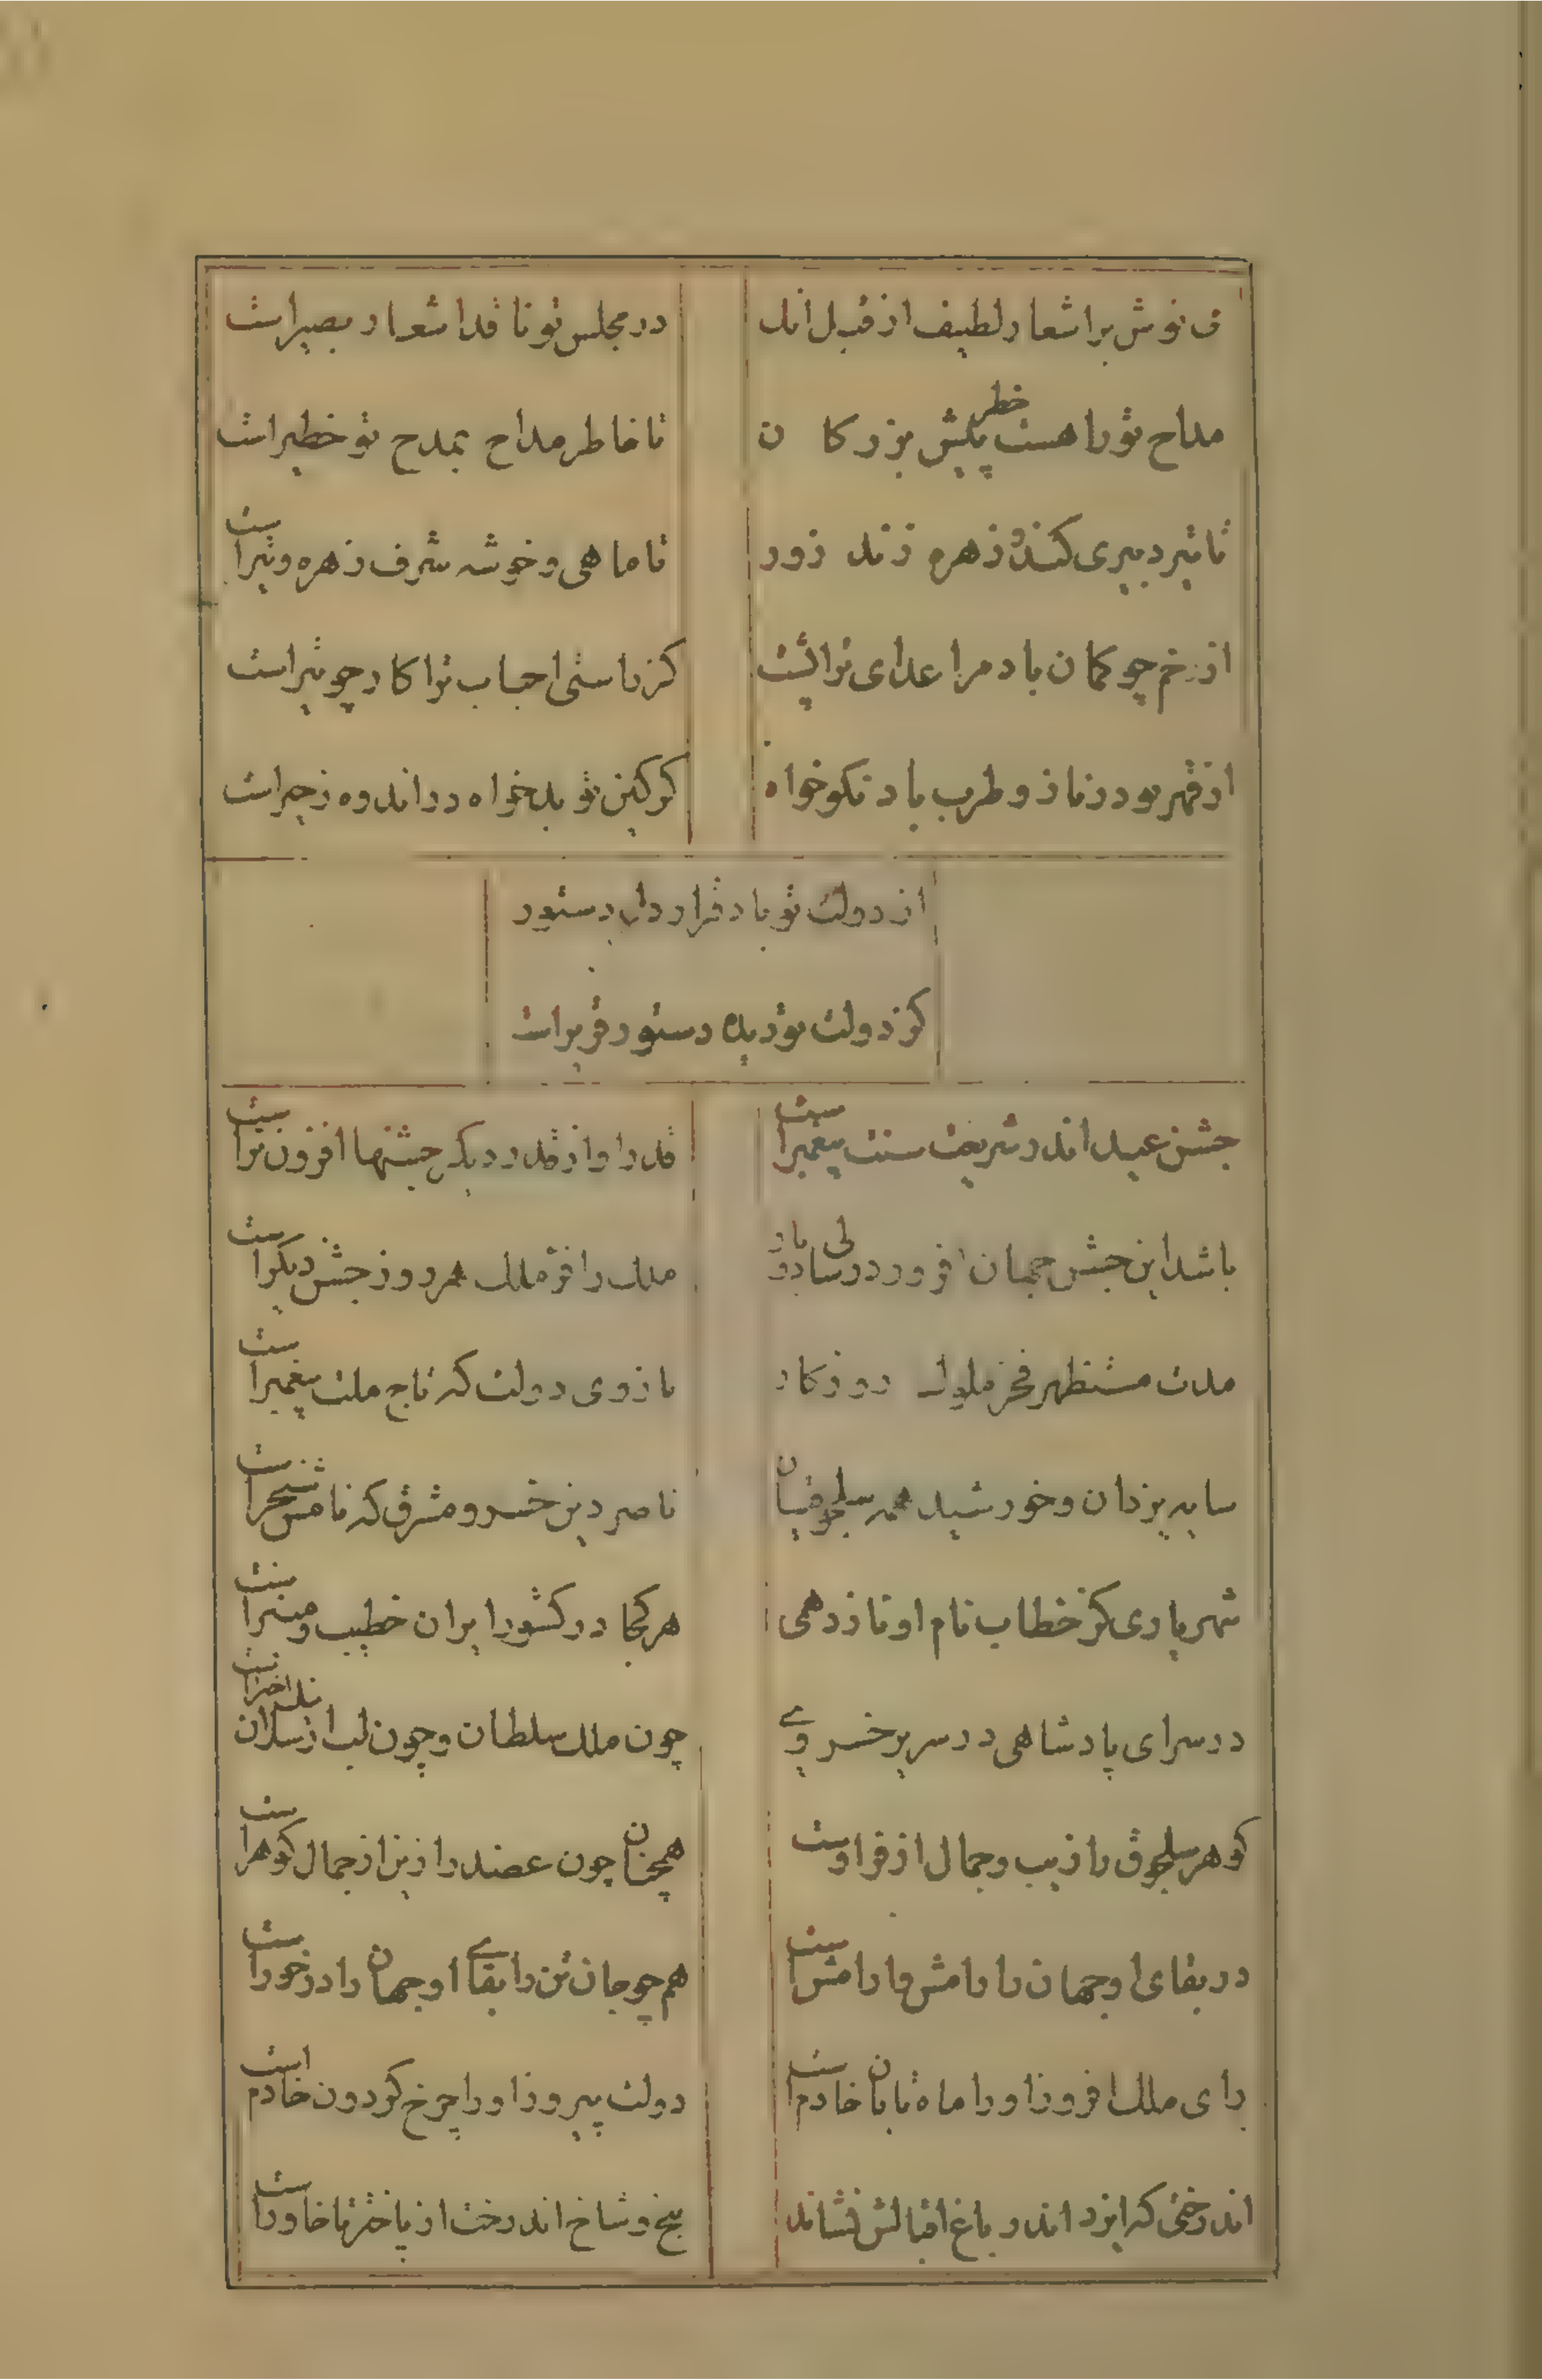 نوش بر اشعار لطیف از قبل اند
در مجلس تو ناقد اشعار بصیر است
مداح تو را هست خطر پیش بزرکان
تا خاطر مداح بمدح تو خطیر است
تا تیر دبیری کند و زهره زند زور
تا ماهی و خوشه شرف زهره و تیر است
از خم چو کمان باد مر اعدای ترا پشت
کز راستی احباب ترا کار چو تیر است
از تو در ناز و طرب باد نکو خواه
کز کین تو بدخواه در اندوه زحیر است
از دولت تو باد قرار دل دستور
کز دولت تو دیده دستور قریر است
جشن عید اندر شریعت سنت پیغمبر است
قدر او از قدر دیکر جشنها افزون تر است
باشد این جشن جهان افروز در سالی دو بار
ملک را فر ملک هر روز جشن دیکر است
مدت مستظهر فخر ملوک روزکار
بازوی دولت که تاج ملت پیغمبر است
سایه یزدان و خورشید همه سلجوقیان
ناصر دین خسرو مشرق که نامش سنجر است
شهریاری کز خطاب نام او نازد همی
هر کجا در کشور ایران خطیب و منبر است
در سرای پادشاهی در سریر خسروی
چون ملک سلطان و چون الب ارسلان نیک اختر است
کوهر سلجوق را زیب و جمال از فر اوست
همچنان چون عضد را زین از جمال کوهر است
در بقای او جهان را رامش و ارامش است
هم چو جان تن را بقای او جهان را در خور است
رای ملک افروز او را ماه تابان خادم است
دولت پیروز او را چرخ کردون خادم است
اندرختی که ایزد اندر باغ اقبالش نشاند
بیخ و شاخ اندرخت از باختر تا خاور است